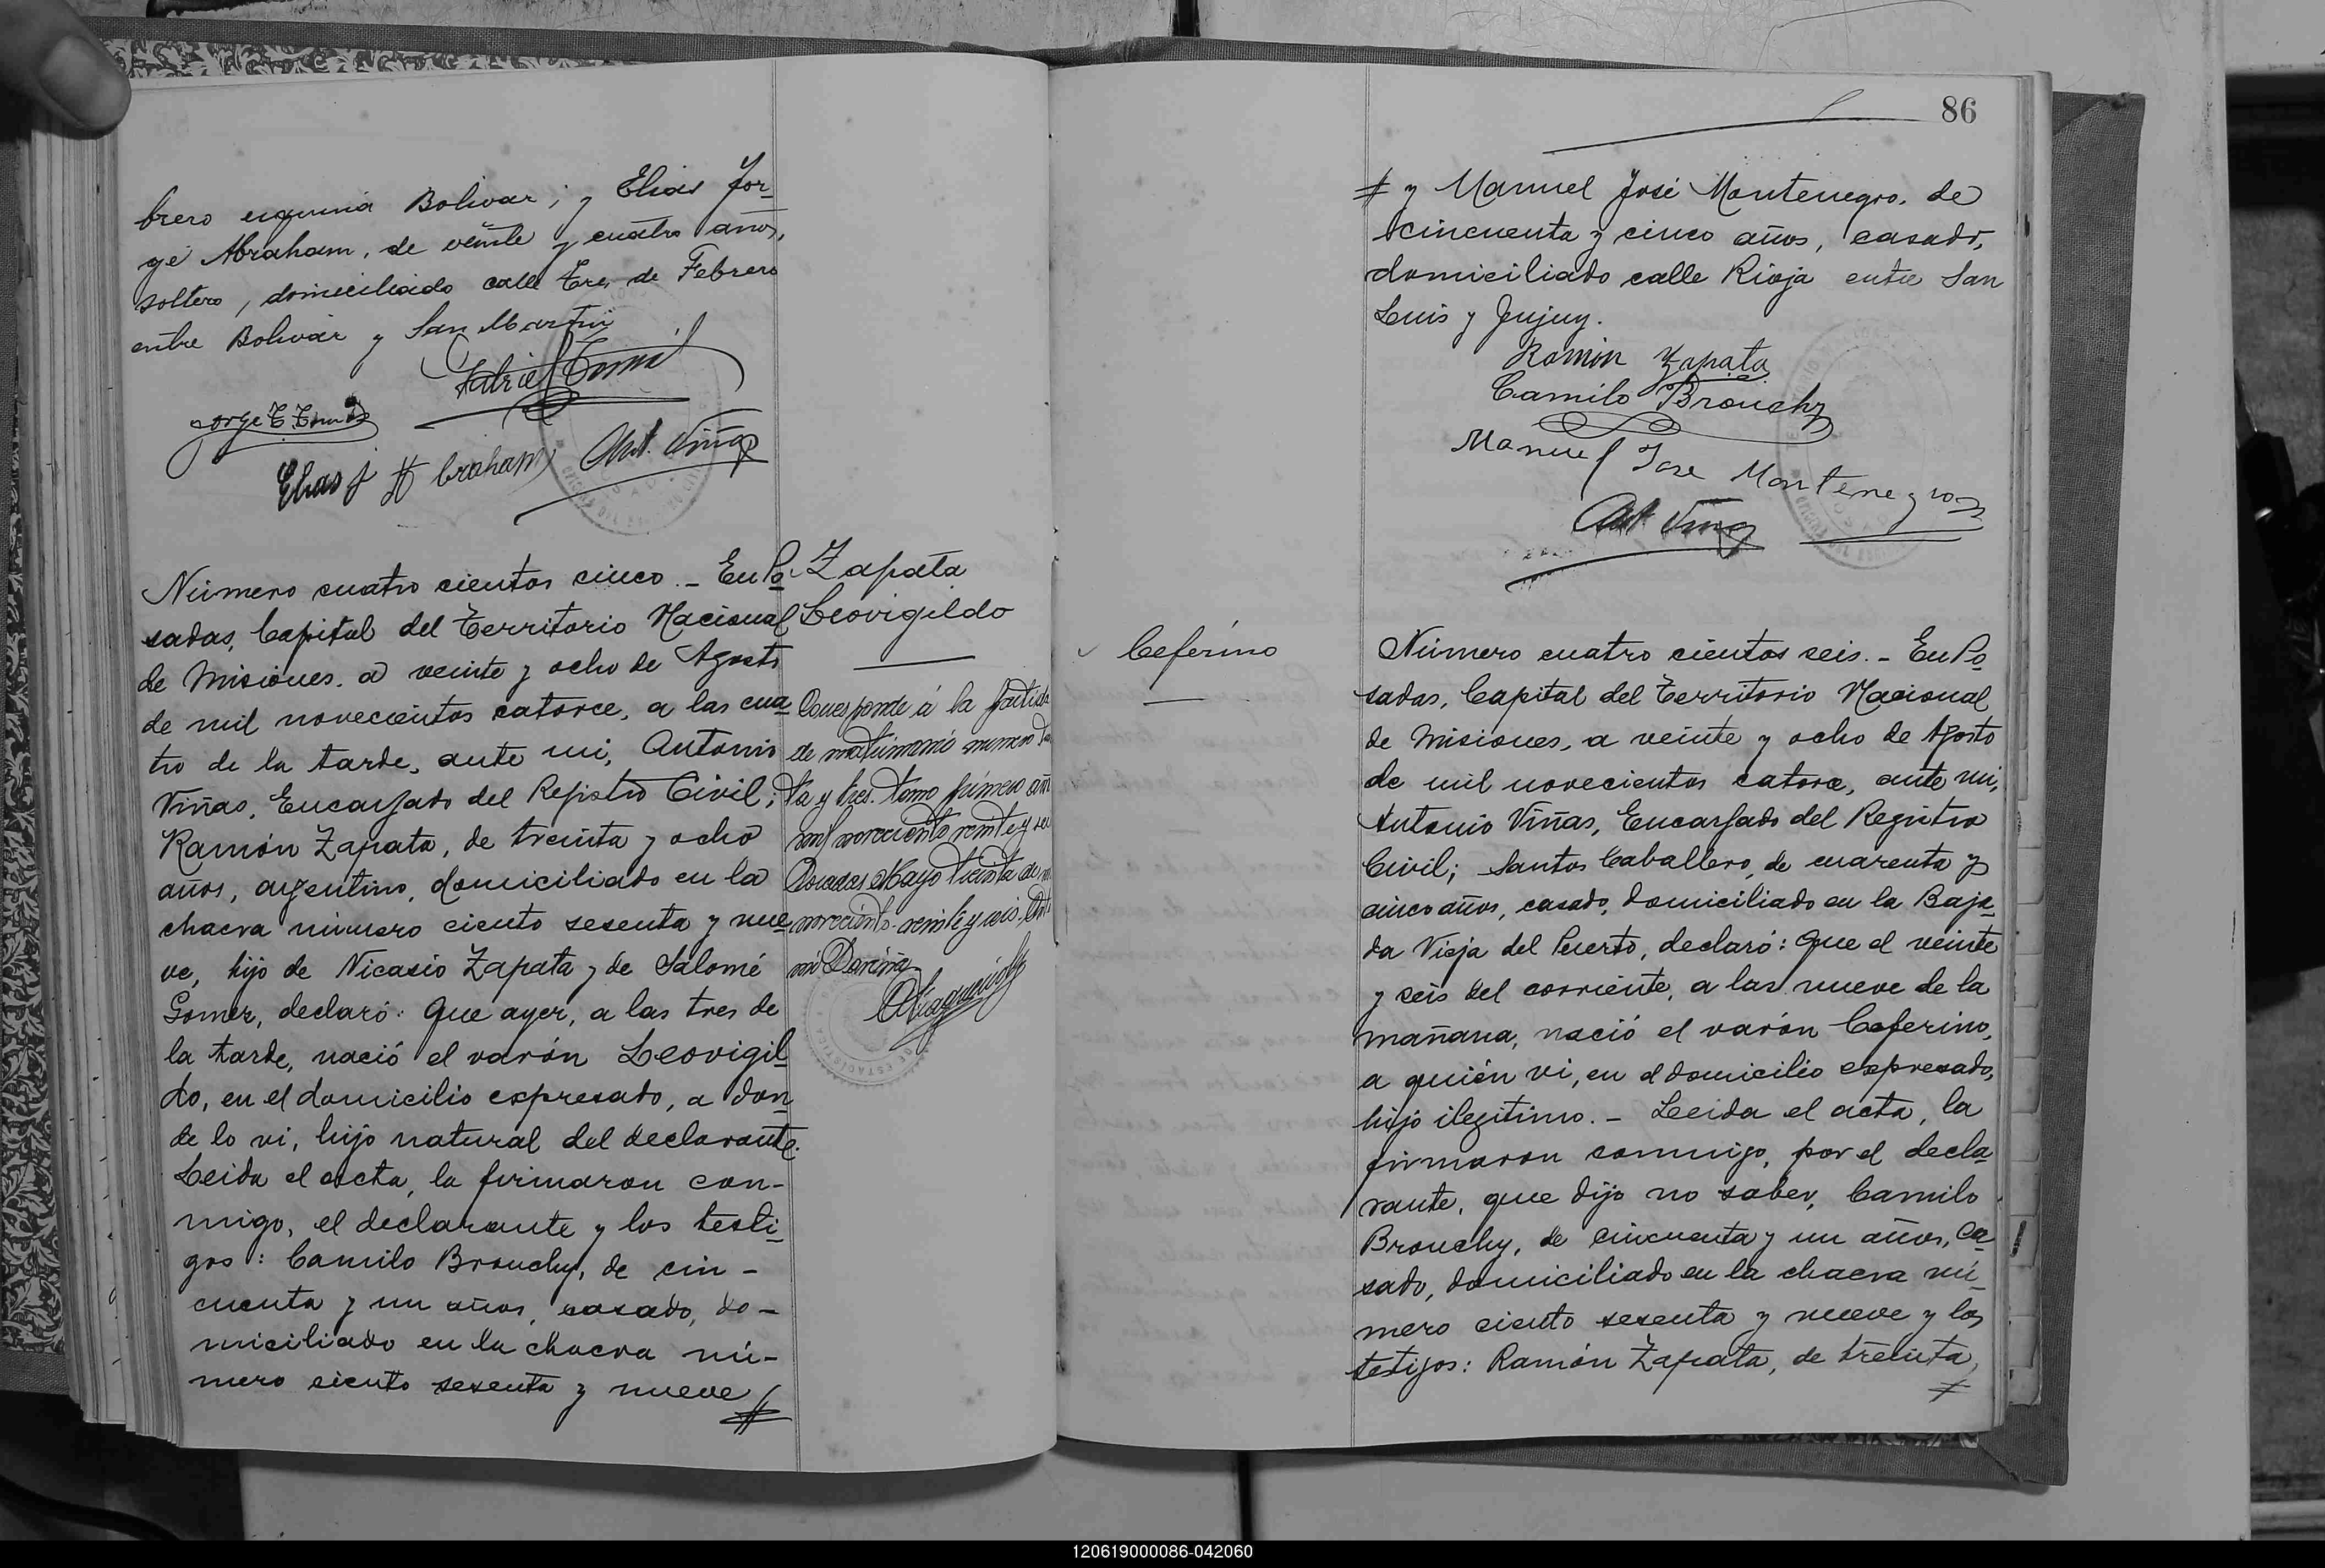 brero esquina Bolivar; y Elias Jor-
ge Abraham, de veinte y cuatro años,
soltero, domiciliado calle Tres de Febrero
entre Bolivar y San Martin
Elias J Abraham
Ant. Viñas
Número cuatro cientos cinco. - En Po-
sadas, Capital del Territorio Nacional
de Misiones, a veinte y ocho de Agosto
de mil novecientos catorce, a las cua-
tro de la tarde, ante mi, Antonio
Viñas, Encargado del Registro Civil;
Ramón Zapata, de treinta y ocho
años, argentino, domiciliado en la
chacra número ciento sesenta y nue-
ve, hijo de Nicasio Zapata y de Salomé
Gomez, declaró: Que ayer, a las tres de
la tarde, nació el varón Leovigil-
do, en el domicilio expresado, a don-
de lo vi, hijo natural del declarante.
Leida el acta, la firmaron con-
migo, el declarante y los testi-
gos: Camilo Brouchy, de cin-
cuenta y un años, casado, do-
miciliado en la chacra nú-
mero ciento sesenta y nueve #
Zapata
Leovigildo
Corresponde á la partida
de matrimonio numero
ta y tres. Tomo primero año
mil novecientos veinte y seis
Posadas Mayo treinta de mil
novecientos veinte y seis.
86
# y Manuel José Montenegro, de
cincuenta y cinco años, casado,
domiciliado calle Rioja entre San
Luis y Jujuy.
Ramón Zapata
Camilo Brouchy
Manuel Jose Montenegro
Ant Viñas
Ceferino
Número cuatro cientos seis. - En Po-
sadas, Capital del Territorio Nacional
de Misiones, a veinte y ocho de Agosto
de mil novecientos catorce, ante mi,
Antonio Viñas, Encargado del Registro
Civil; Santos Caballero, de cuarenta y
cinco años, casado, domiciliado en la Baja-
da Vieja del Puerto, declaró: Que el veinte
y seis del corriente, a las nueve de la
mañana, nació el varón Ceferino,
a quién vi, en el domicilio expresado,
hijo ilegitimo. - Leida el acta, la
firmaron conmigo, por el decla-
rante, que dijo no saber, Camilo
Brouchy, de cincuenta y un años, ca-
sado, domiciliado en la chacra nú-
mero ciento sesenta y nueve y los
testigos: Ramón Zapata, de treinta,
#
120619000086-042060